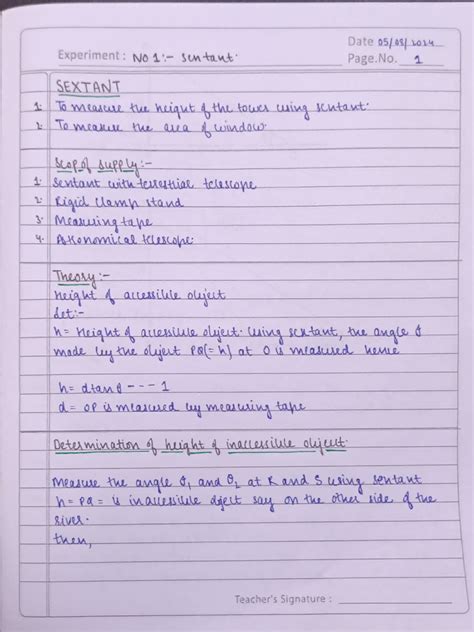 Date 05/08/2024
Experiment : No 1:- Sextant.
Page.No. 1
SEXTANT
1. To measure the height of the tower using sextant.
2. To measure the area of window.
Scop of supply:-
1. Sextant with terrestrial telescope
2. Rigid clamp stand
3. Measuring tape
4. Astronomical telescope.
Theory:-
Height of accessible object
Let:-
h= Height of accessible object. Using sextant, the angle θ
made by the object PQ(=h) at O is measured hence
h= dtanθ - - - 1
d= OP is measured by measuring tape
Determination of height of inaccessible object.
Measure the angle θ₁ and θ₂ at R and S using sextant
h= PQ = is inaccessible object say on the other side of the
river.
then,
Teacher's Signature :